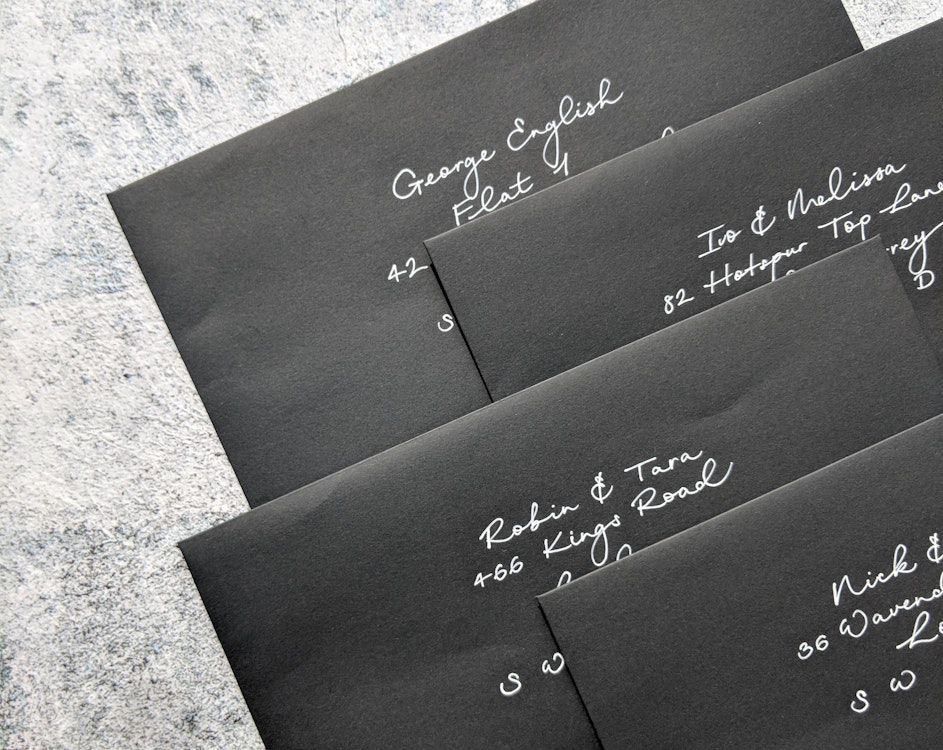 George English
Flat 1
42
S
Ivo & Melissa
82 Hotspur Top Lane
rrey
D
Robin & Tara
466 Kings Road
S W
Nick &
36 Wavend
Lo
S W